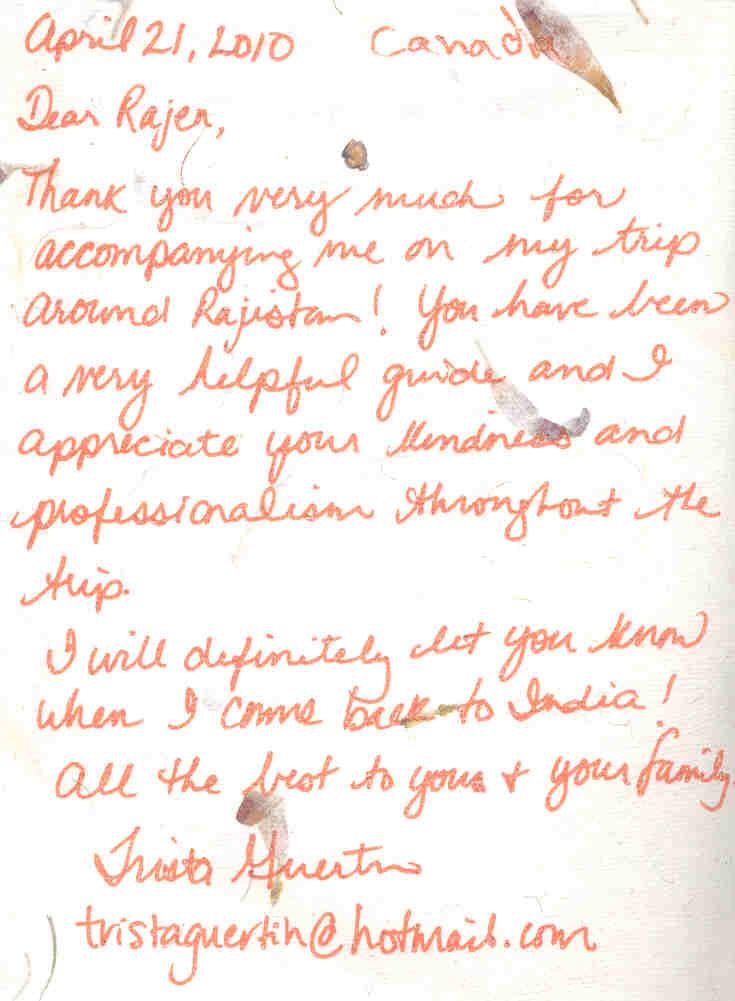 April 21, 2010 Canada
Dear Rajen,
Thank you very much for
accompanying me on my trip
around Rajistan! You have been
a very helpful guide and I
appreciate your kindness and
professionalism throughout the
trip.
I will definitely let you know
when I come back to India!
All the best to you & your family.
Trista Guertin
tristaguertin@hotmail.com